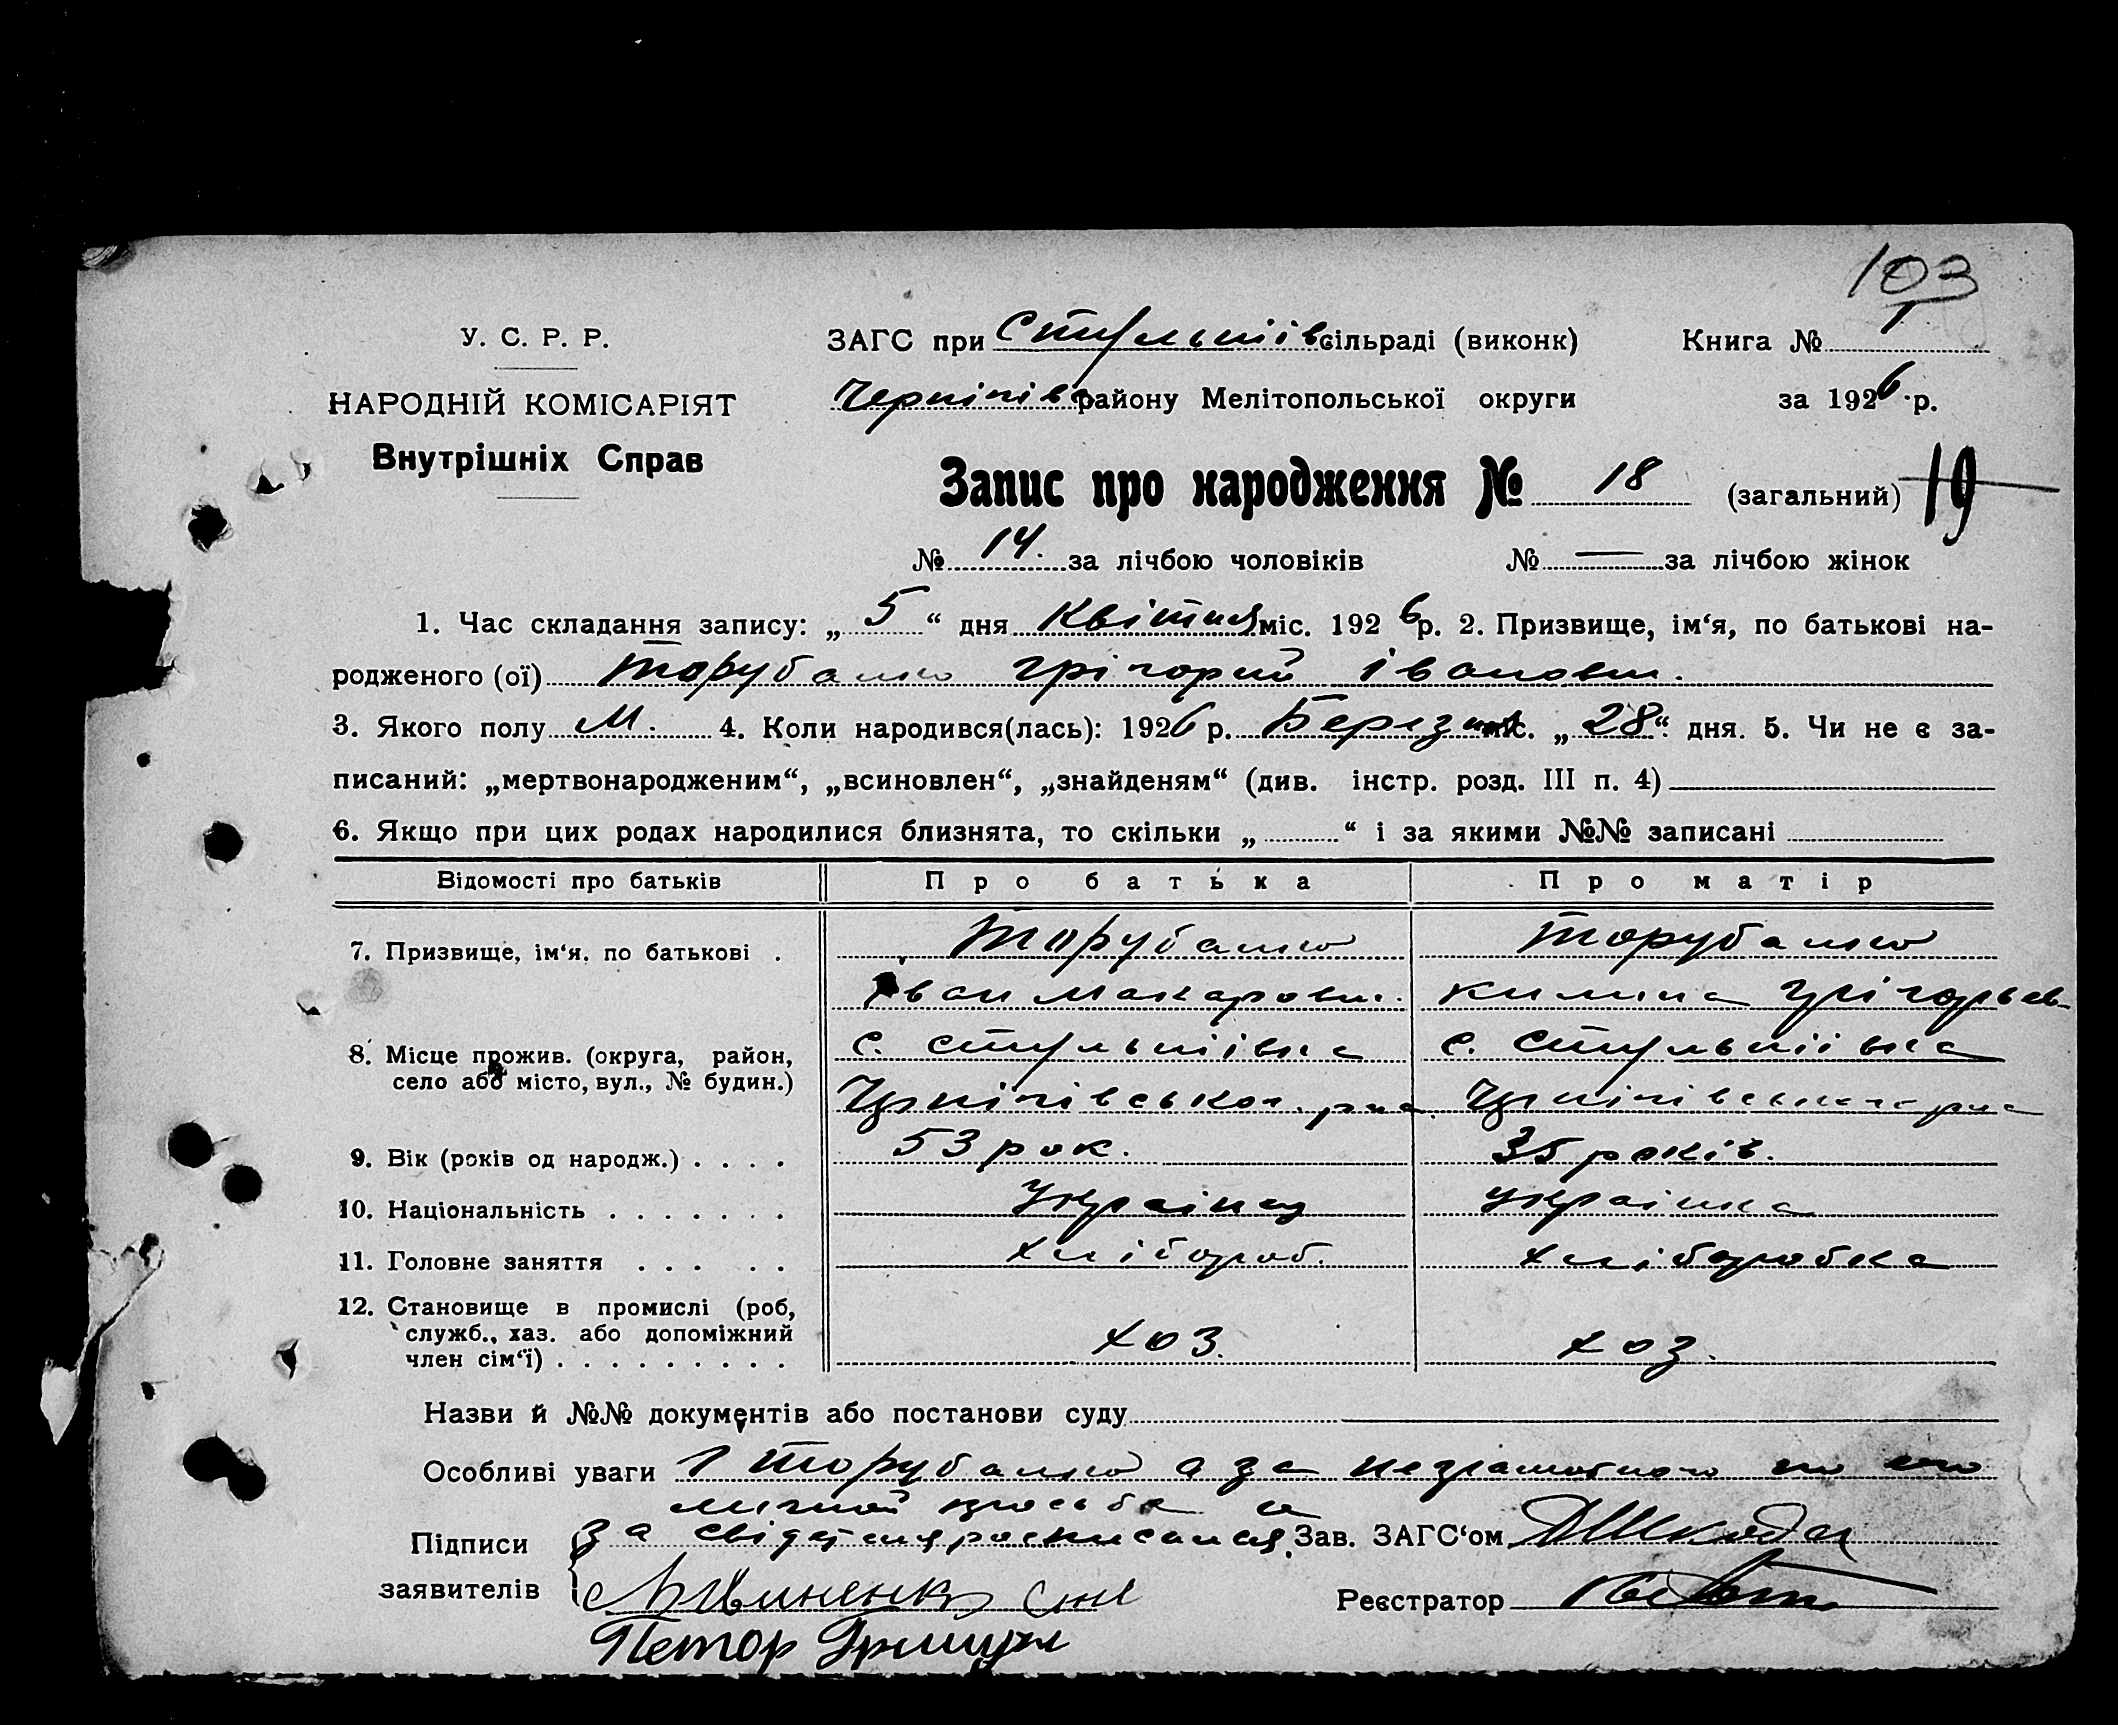 103
У. С. Р. Р.
ЗАГС при Стульнів сільраді (виконк)
Книга № 1
НАРОДНІЙ КОМІСАРІЯТ
Чернігів району Мелітопольської округи
за 1926 р.
Внутрішніх Справ
Запис про народження № 18 (загальний) 19
№ 14. за лічбою чоловіків № — за лічбою жінок
1. Час складання запису: „ 5 “ дня Квітня міс. 1926 р. 2. Призвище, ім‘я, по батькові на-
родженого (ої) Торубалко Грігорий Іванович.
3. Якого полу М. 4. Коли народився(лась): 1926 р. Березня міс. „ 28 “ дня. 5. Чи не є за-
писаний: „мертвонародженим“, „всиновлен“, „знайденям“ (див. інстр. розд. III п. 4)
6. Якщо при цих родах народилися близнята, то скільки „ “ і за якими №№ записані
Відомості про батьків Про батька Про матір
7. Призвище, ім‘я, по батькові . Торубалко Торубалко
Іван Макарович. Килина Грігорьев
8. Місце прожив. (округа, район, с. Стульнівка с. Стульнівка
село або місто, вул., № будин.) Чернігівськ
9. Вік (років од народж.) . . . . 53 рок. 35 років.
10. Національність . . . . . . . Українец Українка
11. Головне заняття . . . . . Хлібороб. Хлібооробка
12. Становище в промислі (роб,
служб., хаз. або допоміжний хоз. хоз.
член сім‘ї) . . . . . . . . .
Назви й №№ документів або постанови суду
Особливі уваги 1 Торубалко а за неграмотного по его
личной просьбе и
Підписи за росписался. Зав. ЗАГС‘ом ДШкода
заявителів
Реєстратор
Петор